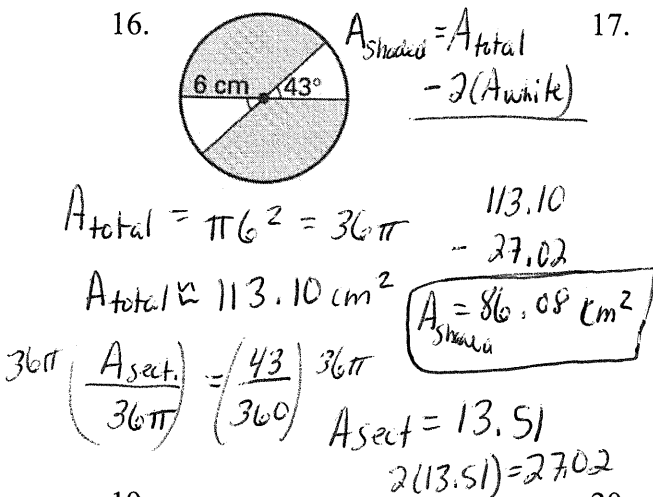 16.
6 cm 43°
A shaded = A total
- 2(A white)
17.
A total = π6² = 36π
A total ≈ 113.10 cm²
113.10
- 27.02
A shaded = 86.08 cm²
36π (A sect. / 36π) = (43 / 360) 36π
A sect = 13.51
2(13.51) = 27.02